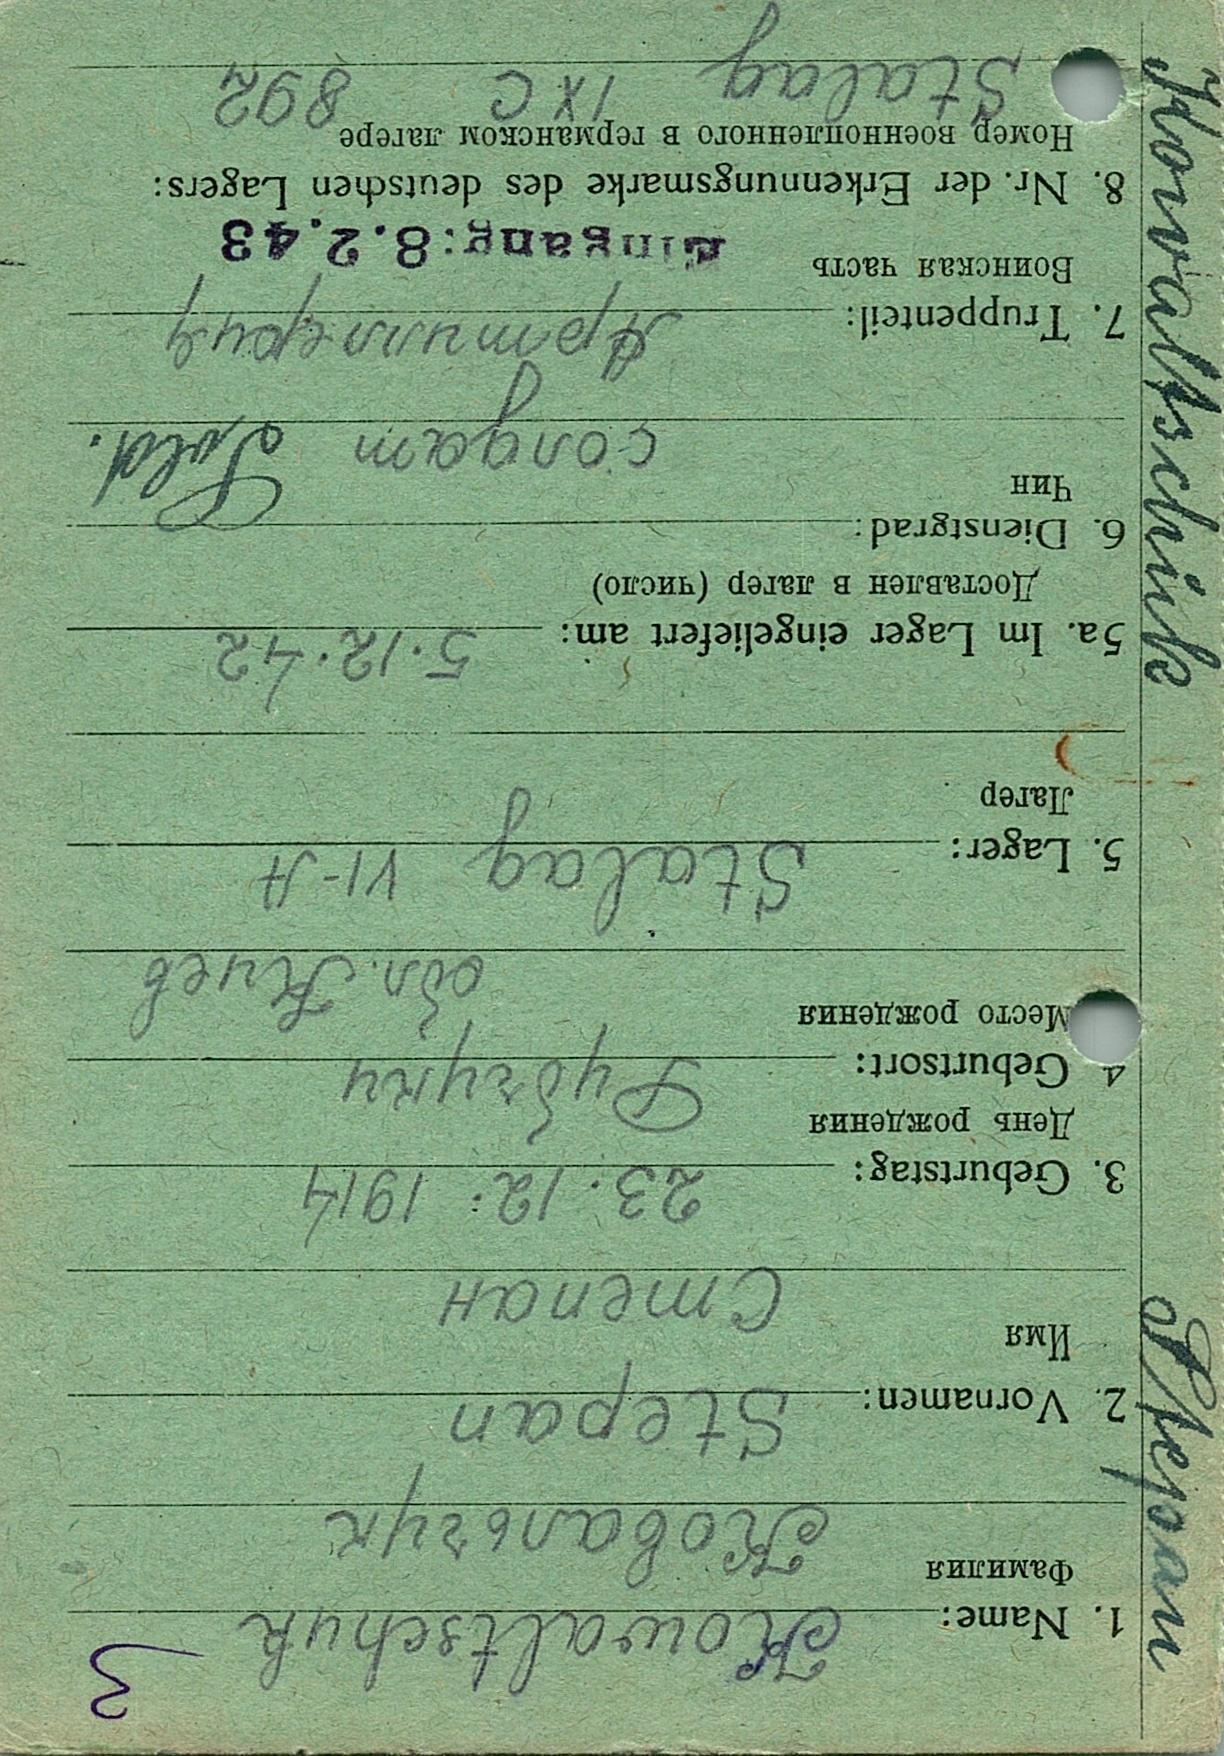 3
1. Name: Kowaltschuk
Фамилия
Ковальчук
2. Vornamen: Stepan
Имя
Степан
3. Geburtstag: 23. 12. 1914
День рождения
4 Geburtsort: Рубчуки
Место рождения
обл. Киев
5. Lager: Stalag VI-A
Лагер
5a. Im Lager eingeliefert am: 5.12.42
Доставлен в лагер (число)
6. Dienstgrad:
Чин
солдат Sold.
7. Truppenteil: Артиллерия
Воинская часть
Eingang: 8.2.43
8. Nr. der Erkennungsmarke des deutschen Lagers:
Номер военнопленного в германском лагере
Stalag IX C 892
Kowaltschuk Stepan